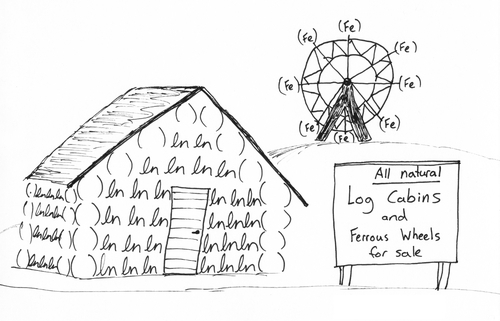 (Fe)
(Fe) (Fe)
(Fe) (Fe)
(Fe) (Fe)
(Fe)
( ) (
) ln ln (
) ln ln ln ln (
ln ln ln ln ln (
(ln ln ln ( ) ( ) ln ln ln ln ln ln (
( ) ln ln ln ( ) ( ) ln ln ln ln ln ln ( )
( ) ln ln ln ( ) ( ) ln ln ln ln ln ln ( )
( ) ln ln ln ( ) ( ) ln ln ln ln ln ln ( )
All natural
Log Cabins
and
Ferrous Wheels
for sale